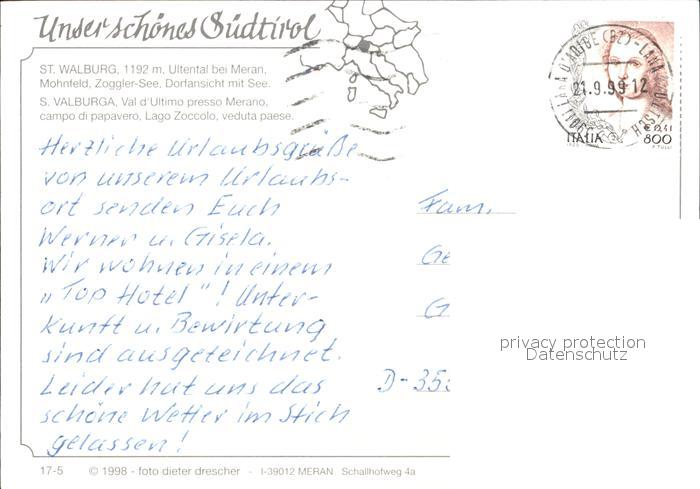 Unser schönes Südtirol
ST. WALBURG, 1192 m, Ultental bei Meran,
Mohnfeld, Zoggler-See, Dorfansicht mit See.
S. VALBURGA, Val d'Ultimo presso Merano,
campo di papavero, Lago Zoccolo, veduta paese.
Herzliche Urlaubsgrüße
von unserem Urlaubs-
ort senden Euch
Werner u. Gisela.
Wir wohnen in einem
„Top Hotel"! Unter-
kunft u. Bewirtung
sind ausgezeichnet.
Leider hat uns das
schöne Wetter im Stich
gelassen!
17-5 © 1998 - foto dieter drescher - I-39012 MERAN Schallhofweg 4a
21.9.99 12
ITALIA
€ 0,41
800
Fam.
Ge
G
D-35
privacy protection
Datenschutz